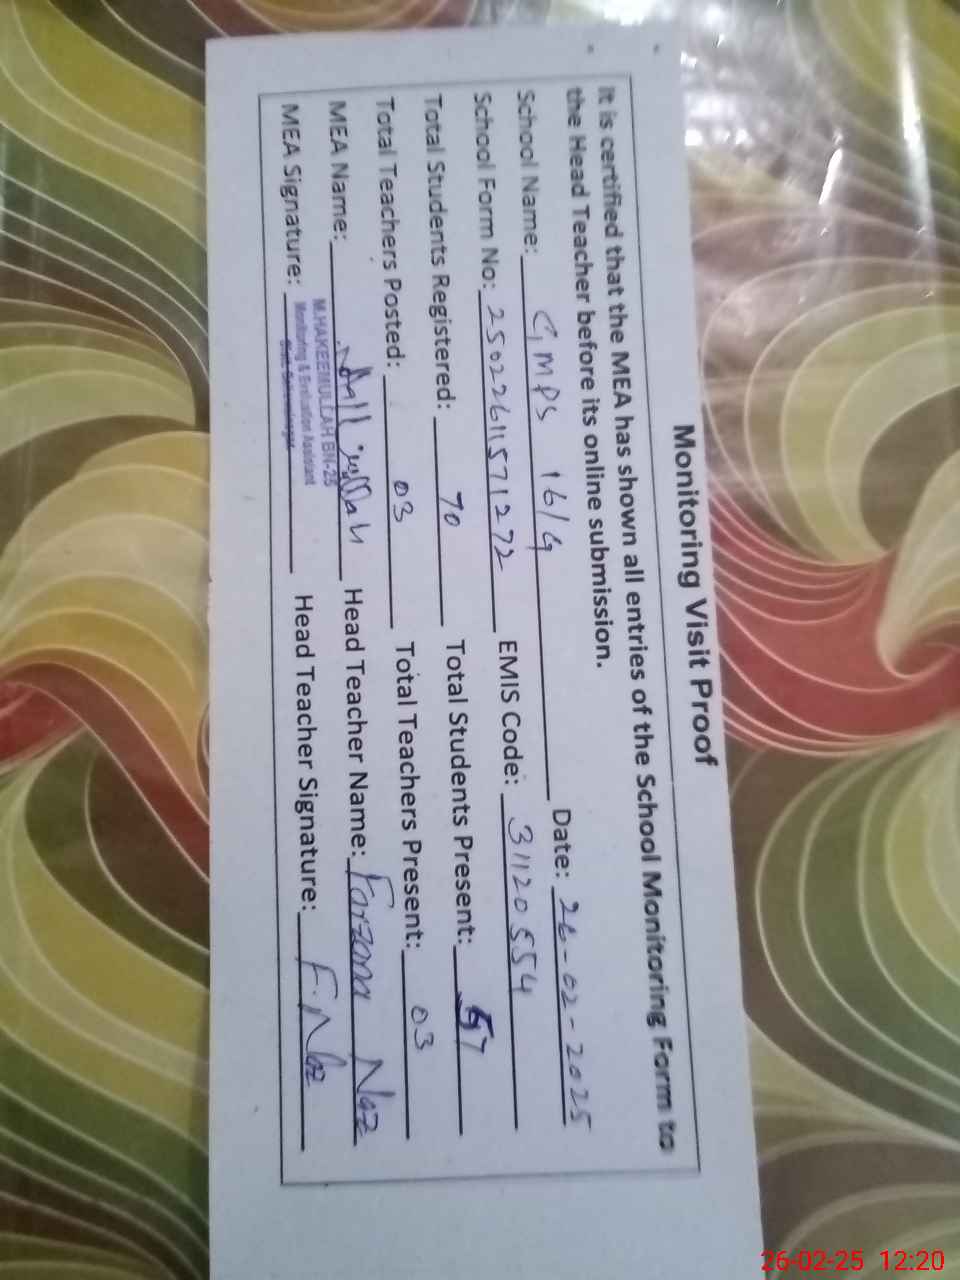 Monitoring Visit Proof
It is certified that the MEA has shown all entries of the School Monitoring Form to
the Head Teacher before its online submission.
School Name: GMPS 16/G Date: 26-02-2025
School Form No: 25022611571272 EMIS Code: 31120554
Total Students Registered: 70 Total Students Present: 67
Total Teachers Posted: 03 Total Teachers Present: 03
MEA Name: Head Teacher Name: Farzana Naz
M.HAKEEMULLAH BN-25
MEA Signature: Head Teacher Signature: F.Naz
Monitoring & Evaluation Assistant
26-02-25 12:20